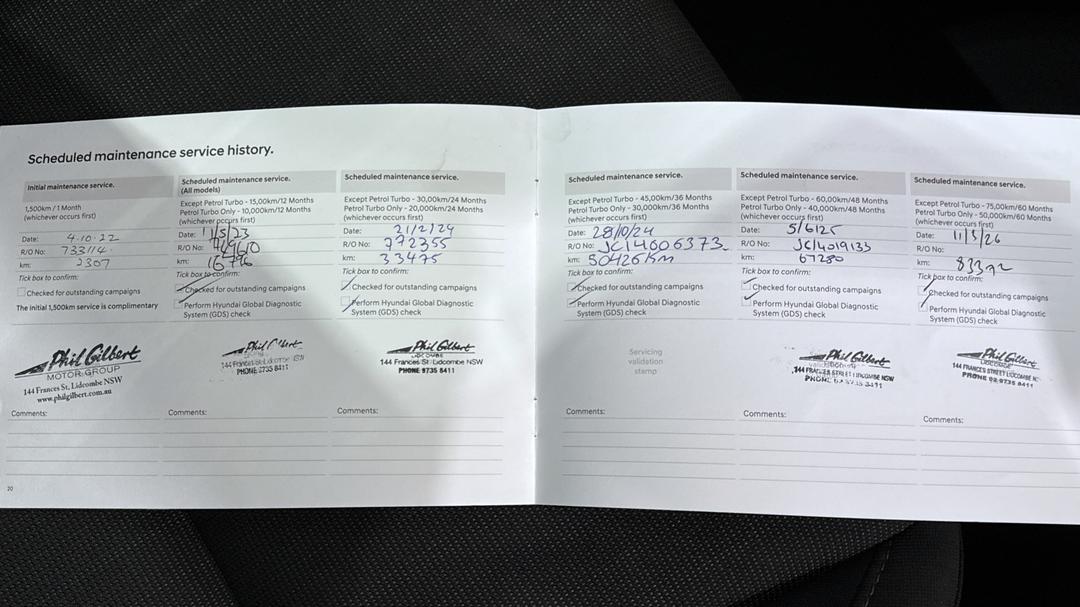 Scheduled maintenance service history.
Initial maintenance service.
1,500km / 1 Month
(whichever occurs first)
Date: 4.10.22
R/O No: 733114
km: 2307
Tick box to confirm:
Checked for outstanding campaigns
The initial 1,500km service is complimentary
Phil Gilbert
MOTOR GROUP
144 Frances St, Lidcombe NSW
www.philgilbert.com.au
Comments:
20
Scheduled maintenance service.
(All models)
Except Petrol Turbo - 15,00km/12 Months
Petrol Turbo Only - 10,000km/12 Months
(whichever occurs first)
Date: 11/5/23
R/O No:
km: 16796
Tick box to confirm:
Checked for outstanding campaigns
Perform Hyundai Global Diagnostic
System (GDS) check
Phil Gilbert
144 Frances St Lidcombe NSW
PHONE 9735 8411
Comments:
Scheduled maintenance service.
Except Petrol Turbo - 30,00km/24 Months
Petrol Turbo Only - 20,000km/24 Months
(whichever occurs first)
Date: 21/2/24
R/O No: 772355
km: 33475
Tick box to confirm:
Checked for outstanding campaigns
Perform Hyundai Global Diagnostic
System (GDS) check
Phil Gilbert
LIDCOMBE
144 Frances St Lidcombe NSW
PHONE 9735 8411
Comments:
Scheduled maintenance service.
Except Petrol Turbo - 45,00km/36 Months
Petrol Turbo Only - 30,000km/36 Months
(whichever occurs first)
Date: 28/10/24
R/O No: JC14006373
km: 50426km
Tick box to confirm:
Checked for outstanding campaigns
Perform Hyundai Global Diagnostic
System (GDS) check
Servicing
validation
stamp
Comments:
Scheduled maintenance service.
Except Petrol Turbo - 60,00km/48 Months
Petrol Turbo Only - 40,000km/48 Months
(whichever occurs first)
Date: 5/6/25
R/O No: JC14019133
km: 67280
Tick box to confirm:
Checked for outstanding campaigns
Perform Hyundai Global Diagnostic
System (GDS) check
Phil Gilbert
144 FRANCES STREET LIDCOMBE NSW
PHONE 02 9735 8411
Comments:
Scheduled maintenance service.
Except Petrol Turbo - 75,00km/60 Months
Petrol Turbo Only - 50,000km/60 Months
(whichever occurs first)
Date: 11/3/26
R/O No:
km: 83392
Tick box to confirm:
Checked for outstanding campaigns
Perform Hyundai Global Diagnostic
System (GDS) check
Phil Gilbert
LIDCOMBE
144 FRANCES STREET LIDCOMBE N
PHONE 02 9735 8411
Comments: